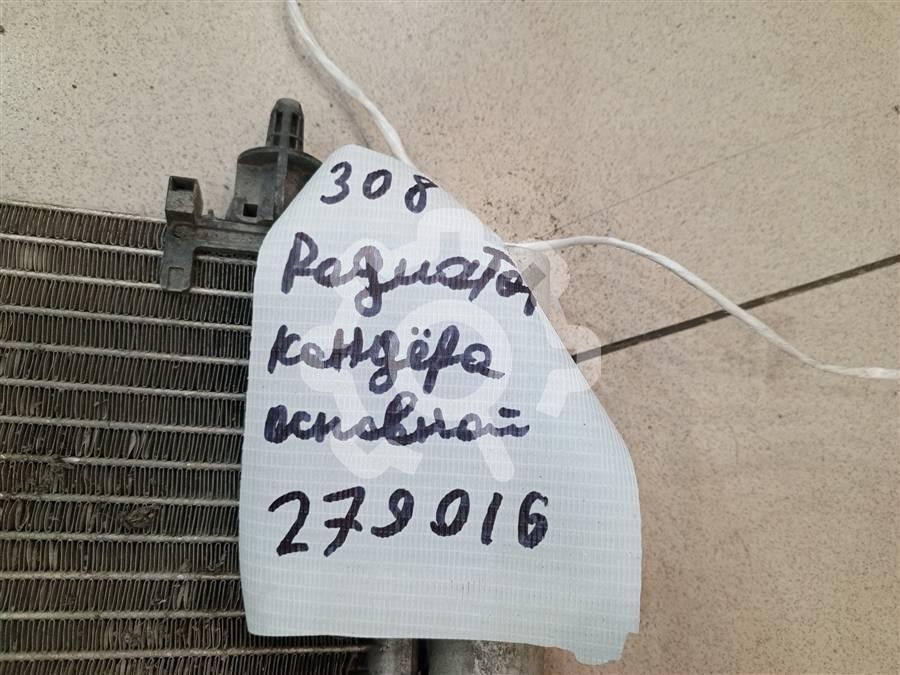 308
Радиатор
кондёра
основной
279016